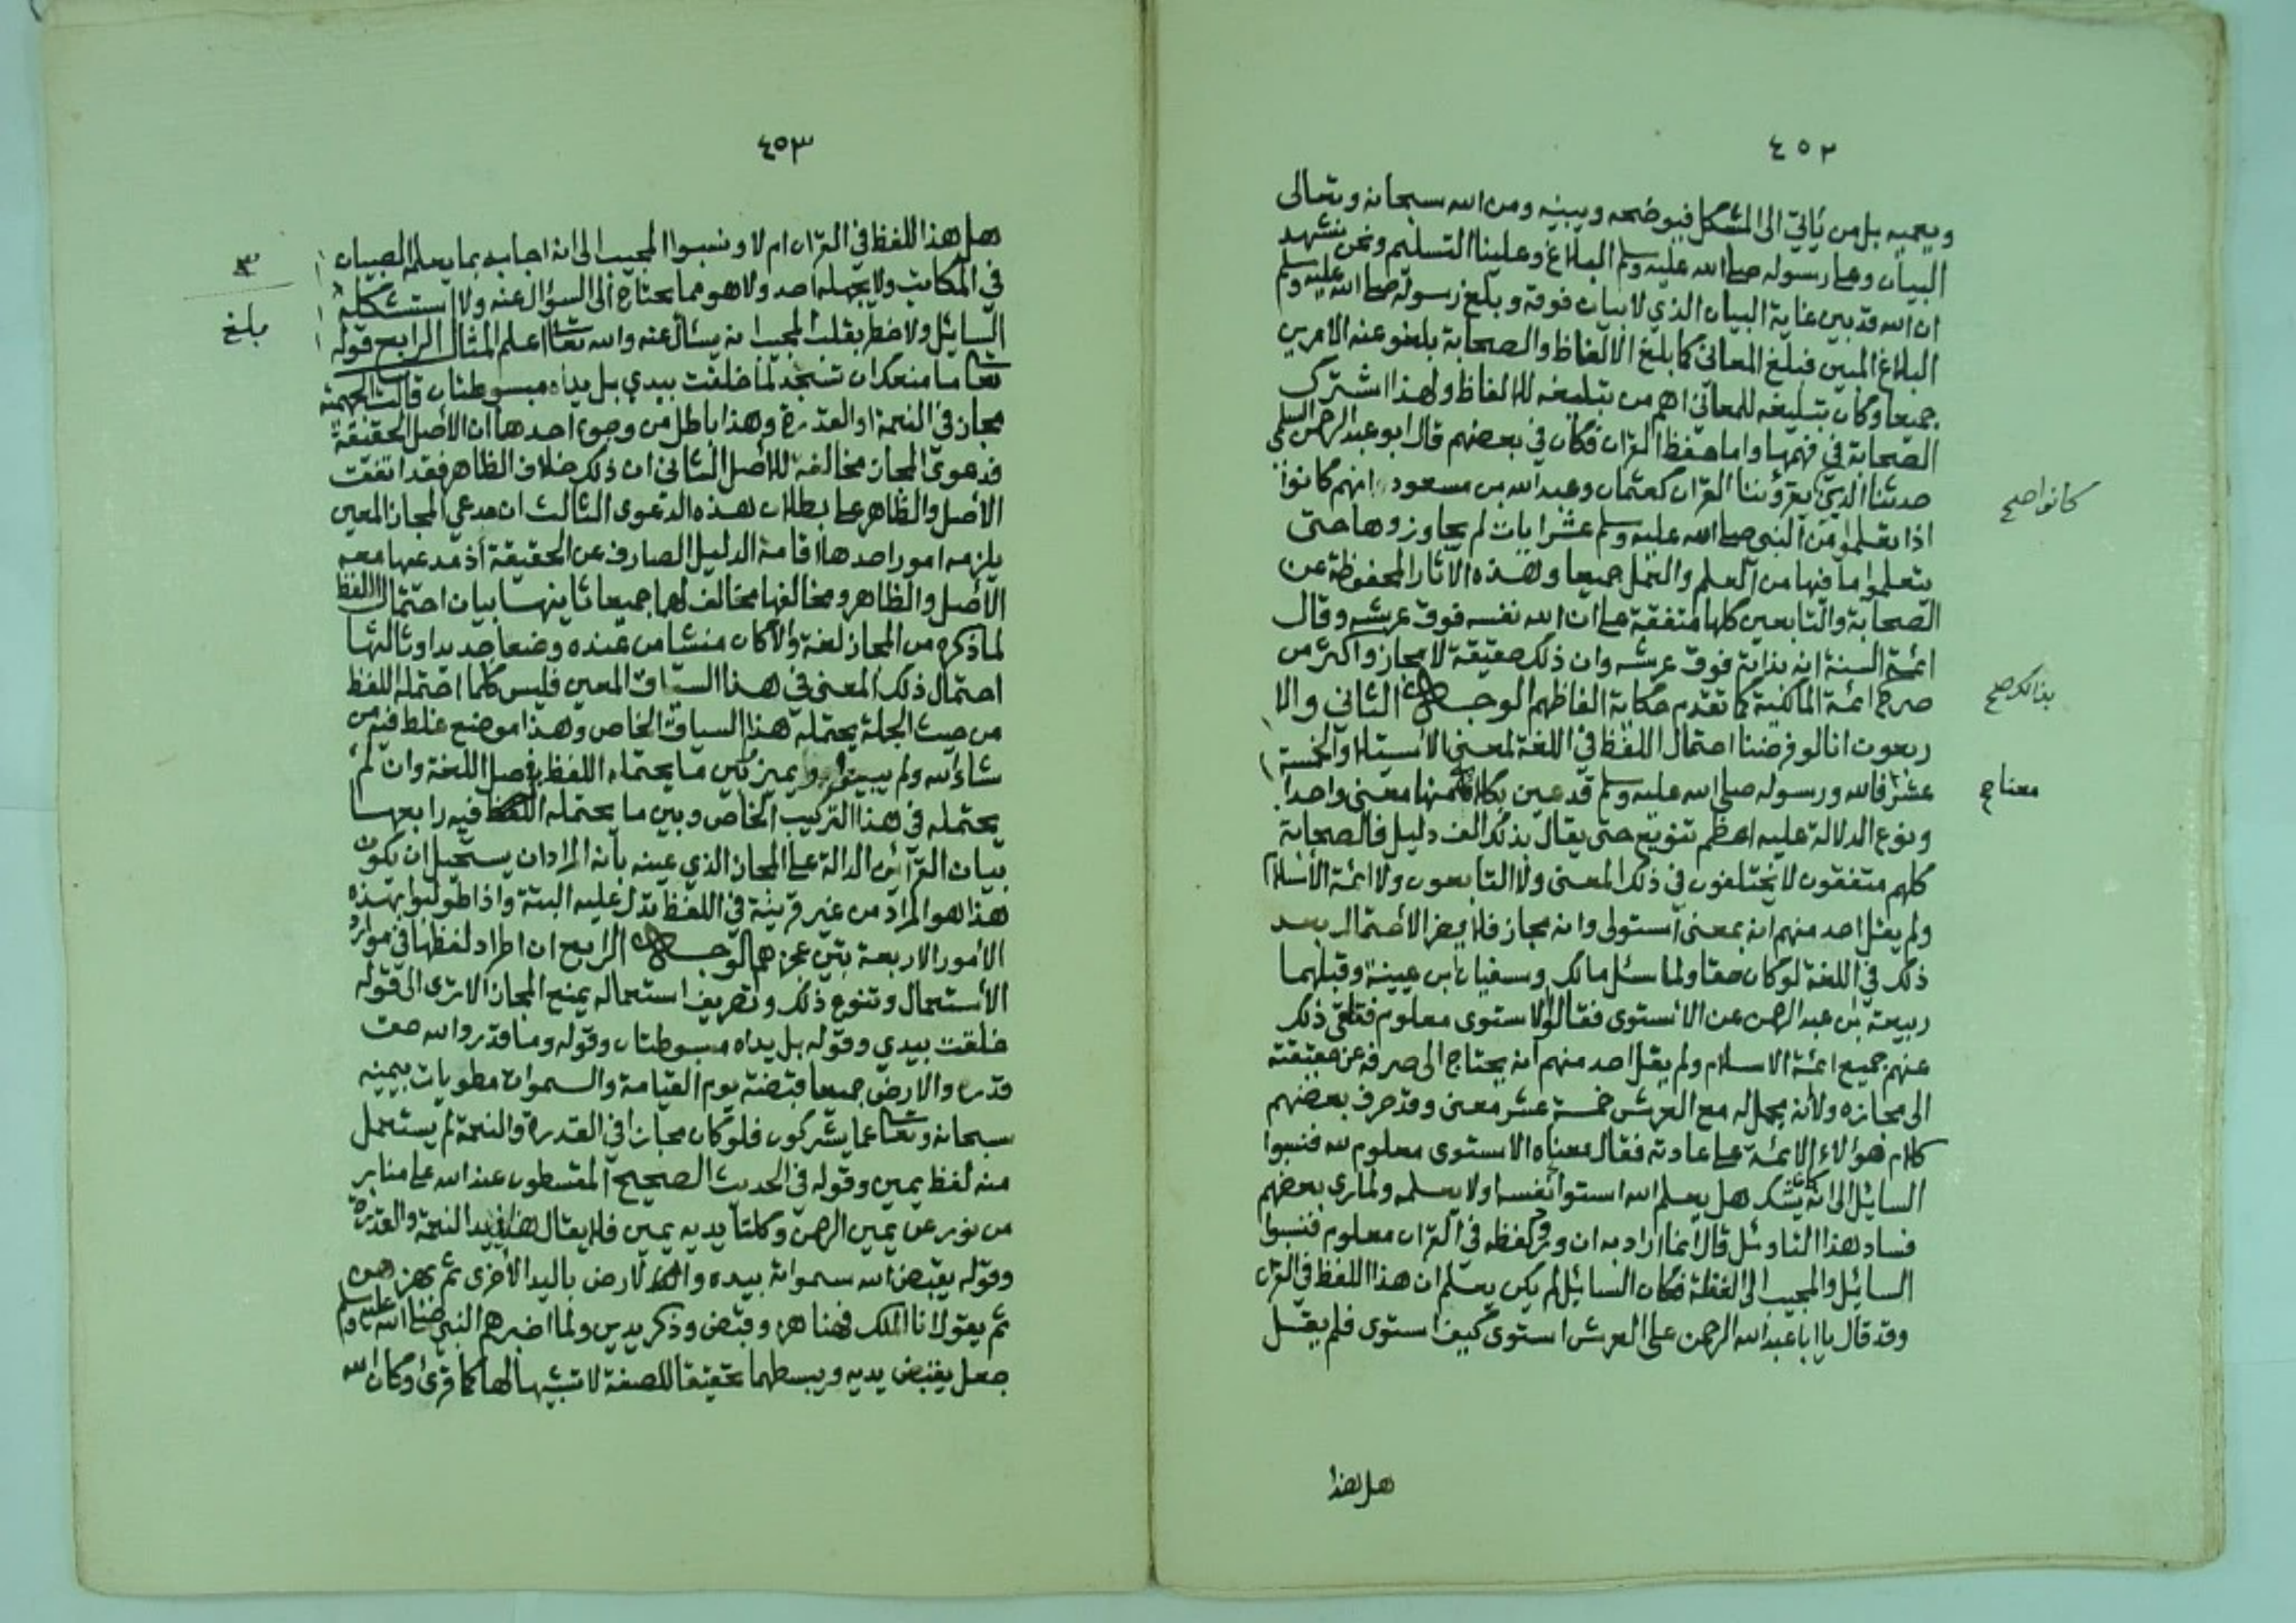 ٤٥٢
ويعميه بل من يأتي الى المشكل فيوضحه ويبينه ومن الله سبحانه وتعالى
البيان وعلى رسوله صلى الله عليه وسلم البلاغ وعلينا التسليم ونحن نشهد
ان الله قد بين غاية البيان الذي لا بيان فوقه وبلغ رسوله صلى الله عليه وسلم
البلاغ المبين فبلغ المعاني كما بلغ الالفاظ والصحابة بلغوا عنه الامرين
جميعا وكان تبليغه للمعاني اهم من تبليغه للالفاظ ولهذا اشترك
الصحابة في فهمها واما حفظ القران فكان في بعضهم قال ابو عبد الرحمن السلمي
حدثنا الذين يقرؤننا القران كعثمان وعبد الله بن مسعود انهم كانوا
كانوا صح
اذا تعلموا من النبي صلى الله عليه وسلم عشر ايات لم يجاوزوها حتى
يتعلموا ما فيها من العلم والعمل جميعا وهذه الاثار المحفوظة عن
الصحابة والتابعين كلها متفقة على ان الله نفسه فوق عرشه وقال
ائمة السنة انه بذاته فوق عرشه وان ذلك حقيقة لا مجاز واكثر من
صرح ائمة المالكية كما تقدم حكاية الفاظهم الوجه الثاني والا
بذالك صح
ربعون انا لو فرضنا احتمال اللفظ في اللغة لمعنى الاستيلا والخمسة
عشر فالله ورسوله صلى الله عليه وسلم قد عين بكلامه منها معنى واحدا
معنا ح
ونوع الدلالة عليه اعظم تنويع حتى يقال بذلك الف دليل فالصحابة
كلهم متفقون لا يختلفون في ذلك المعنى ولا التابعون ولا ائمة الأسلام
ولم يقل احد منهم انه بمعنى استولى وانه مجاز فلا يضر الاحتمال بعد
ذلك في اللغة لو كان حقا ولما سئل مالك وسفيان ابن عيينة وقبلهما
ربيعة بن عبد الرحمن عن الأستوى فقالوا الاستوى معلوم فتلقى ذلك
عنهم جميع ائمة الاسلام ولم يقل احد منهم انه يحتاج الى صرفه عن حقيقته
الى مجازه ولأنه مجمل له مع العرش خمسة عشر معنى وقد حرف بعضهم
كلام هؤلاء الائمة على عادته فقال معناه الاستوى معلوم لله فنسبوا
السائل الى انه كان يشك هل يعلم الله استوا نفسه او لا يعلمه ولما رى بعضهم
فساد هذا التاويل قال انما اراد به ان ورود لفظه في القران معلوم فنسبوا
السائل والمجيب الى الغفلة فكان السائل لم يكن يعلم ان هذا اللفظ في القران
وقد قال يا ابا عبد الله الرحمن على العرش استوى كيف استوى فلم يقل
هل هذا
٤٥٣
هل هذا اللفظ في القران ام لا ونسبوا المجيب الى انه اجابه بما يعلمه الصبيان
في المكاتب ولا يجهله احد ولا هو مما يحتاج الى السؤال عنه ولا استشكله
السائل ولا خطر بقلب المجيب انه يسأل عنه والله تعا اعلم المثال الرابع قوله
بلغ
تعا ما منعك ان تسجد لما خلقت بيدي بل يداه مبسوطتان قالت الجهمية
مجاز في النعمة او القدرة وهذا باطل من وجوه احدها ان الأصل الحقيقة
فدعوى المجاز مخالفة للأصل الثاني ان ذلك خلاف الظاهر فقد اتفقت
الأصل والظاهر على بطلان هذه الدعوى الثالث ان مدعي المجاز المعين
يلزمه امور احدها اقامة الدليل الصارف عن الحقيقة اذ مدعيها معه
الأصل والظاهر ومخالفها مخالف لهما جميعا ثانيها بيان احتمال اللفظ
لما ذكره من المجاز لغة والا كان منشا من عنده وضعا جديدا وثالثها
احتمال ذلك المعنى في هذا السياق المعين فليس كلما احتمله اللفظ
من حيث الجملة يحتمله هذا السياق الخاص وهذا موضع غلط فيه من
شاء الله ولم يبينوا ويميز بين ما يحتمله اللفظ باصل اللغة وان لم
يحتمله في هذا التركيب الخاص وبين ما يحتمله اللفظ فيه رابعها
بيان القرآئن الدالة على المجاز الذي عينه بأنه المراد ان يستحيل ان يكون
هذا هو المراد من غير قرينة في اللفظ تدل عليه البتة واذا طولبوا بهذه
الأمور الاربعة تبين عجزهم الوجه الرابع ان اطراد لفظها في موارد
الأستعمال وتنوع ذلك وتصريف استعماله يمنع المجاز الا ترى الى قوله
خلقت بيدي وقوله بل يداه مبسوطتان وقوله وما قدروا الله حق
قدره والارض جميعا قبضته يوم القيامة والسموات مطويات بيمينه
سبحانه وتعا عما يشركون فلو كان مجازا في القدرة والنعمة لم يستعمل
منه لفظ يمين وقوله في الحديث الصحيح المقسطون عند الله على منابر
من نور عن يمين الرحمن وكلتا يديه يمين فلا يقال هذا في يد النعمة والقدرة
وقوله يقبض الله سمواته بيده والارض باليد الأخرى ثم يهزهن
ثم يقول انا الملك فهنا هز وقبض وذكر يدين ولما اخبرهم النبي صلى الله عليه وسلم
جعل يقبض يديه ويبسطهما تحقيقا للصفة لا تشبيها لها كما قرئ وكان الله